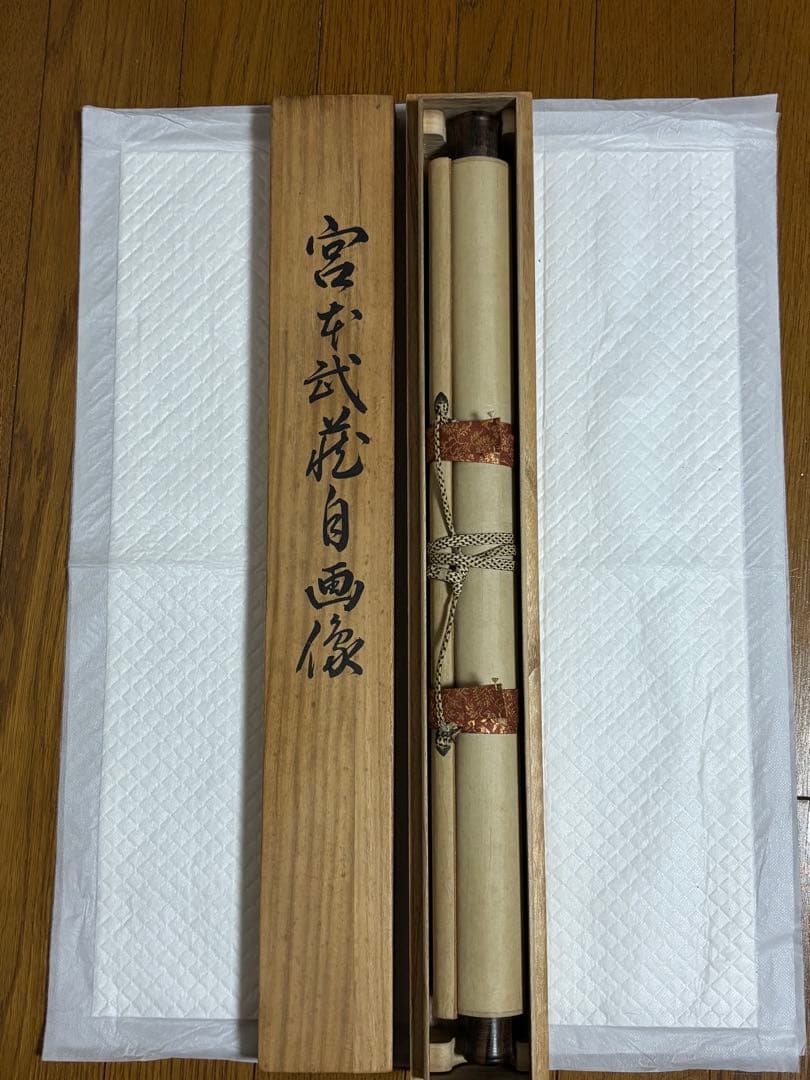 宮本武蔵自画像